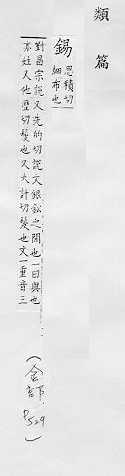 類篇
錫 思積切
細布也
劉昌宗說又先的切說文銀鉛之間也一曰與也
亦姓又他歷切髲也又大計切髲也文一重音三
(金部 P529)